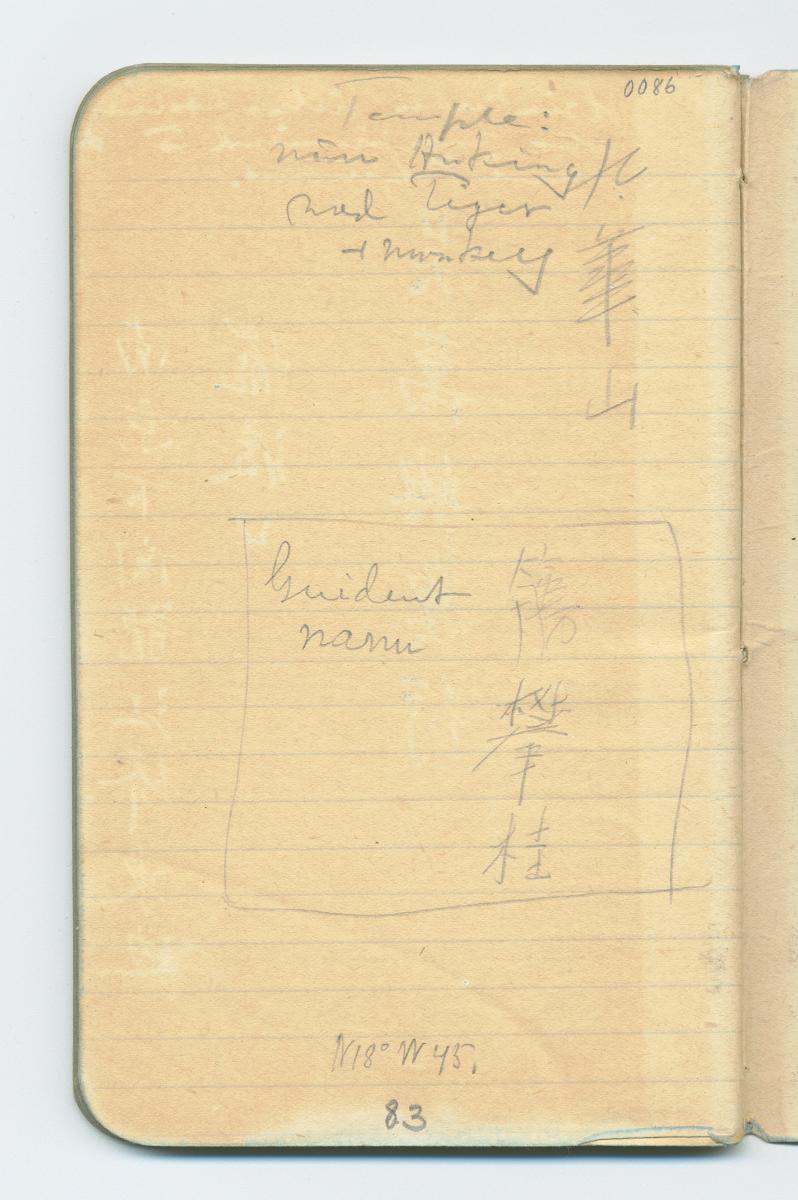 0086
Temple:
near Anking
and Tiger
+ monkey
九華山
Guident
nanu
攀桂
N18° W45.
83